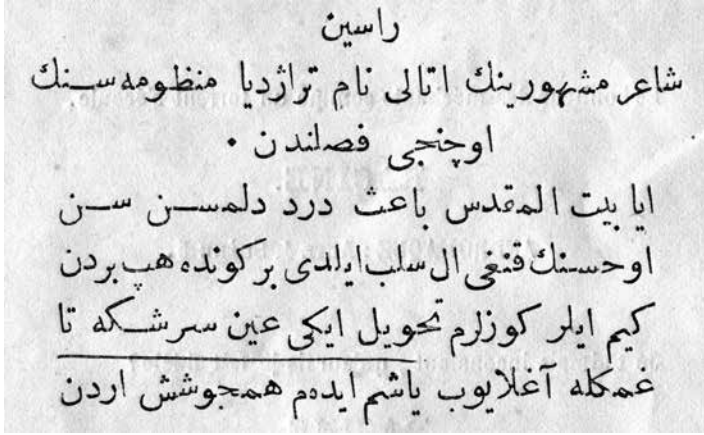 راسين
شاعر مشهورينك اتالى نام تراژديا منظومه سنك
اوچنجى فصلندن ٠
ايا بيت المقدس باعث درد دلمسن سن
او حسنك قنغى ال سلب ايلدى بر كونده هپ بردن
كيم ايلر كوزلرم تحويل ايكى عين سرشكه تا
غمكله آغلايوب ياشم ايدم همجوشش اردن